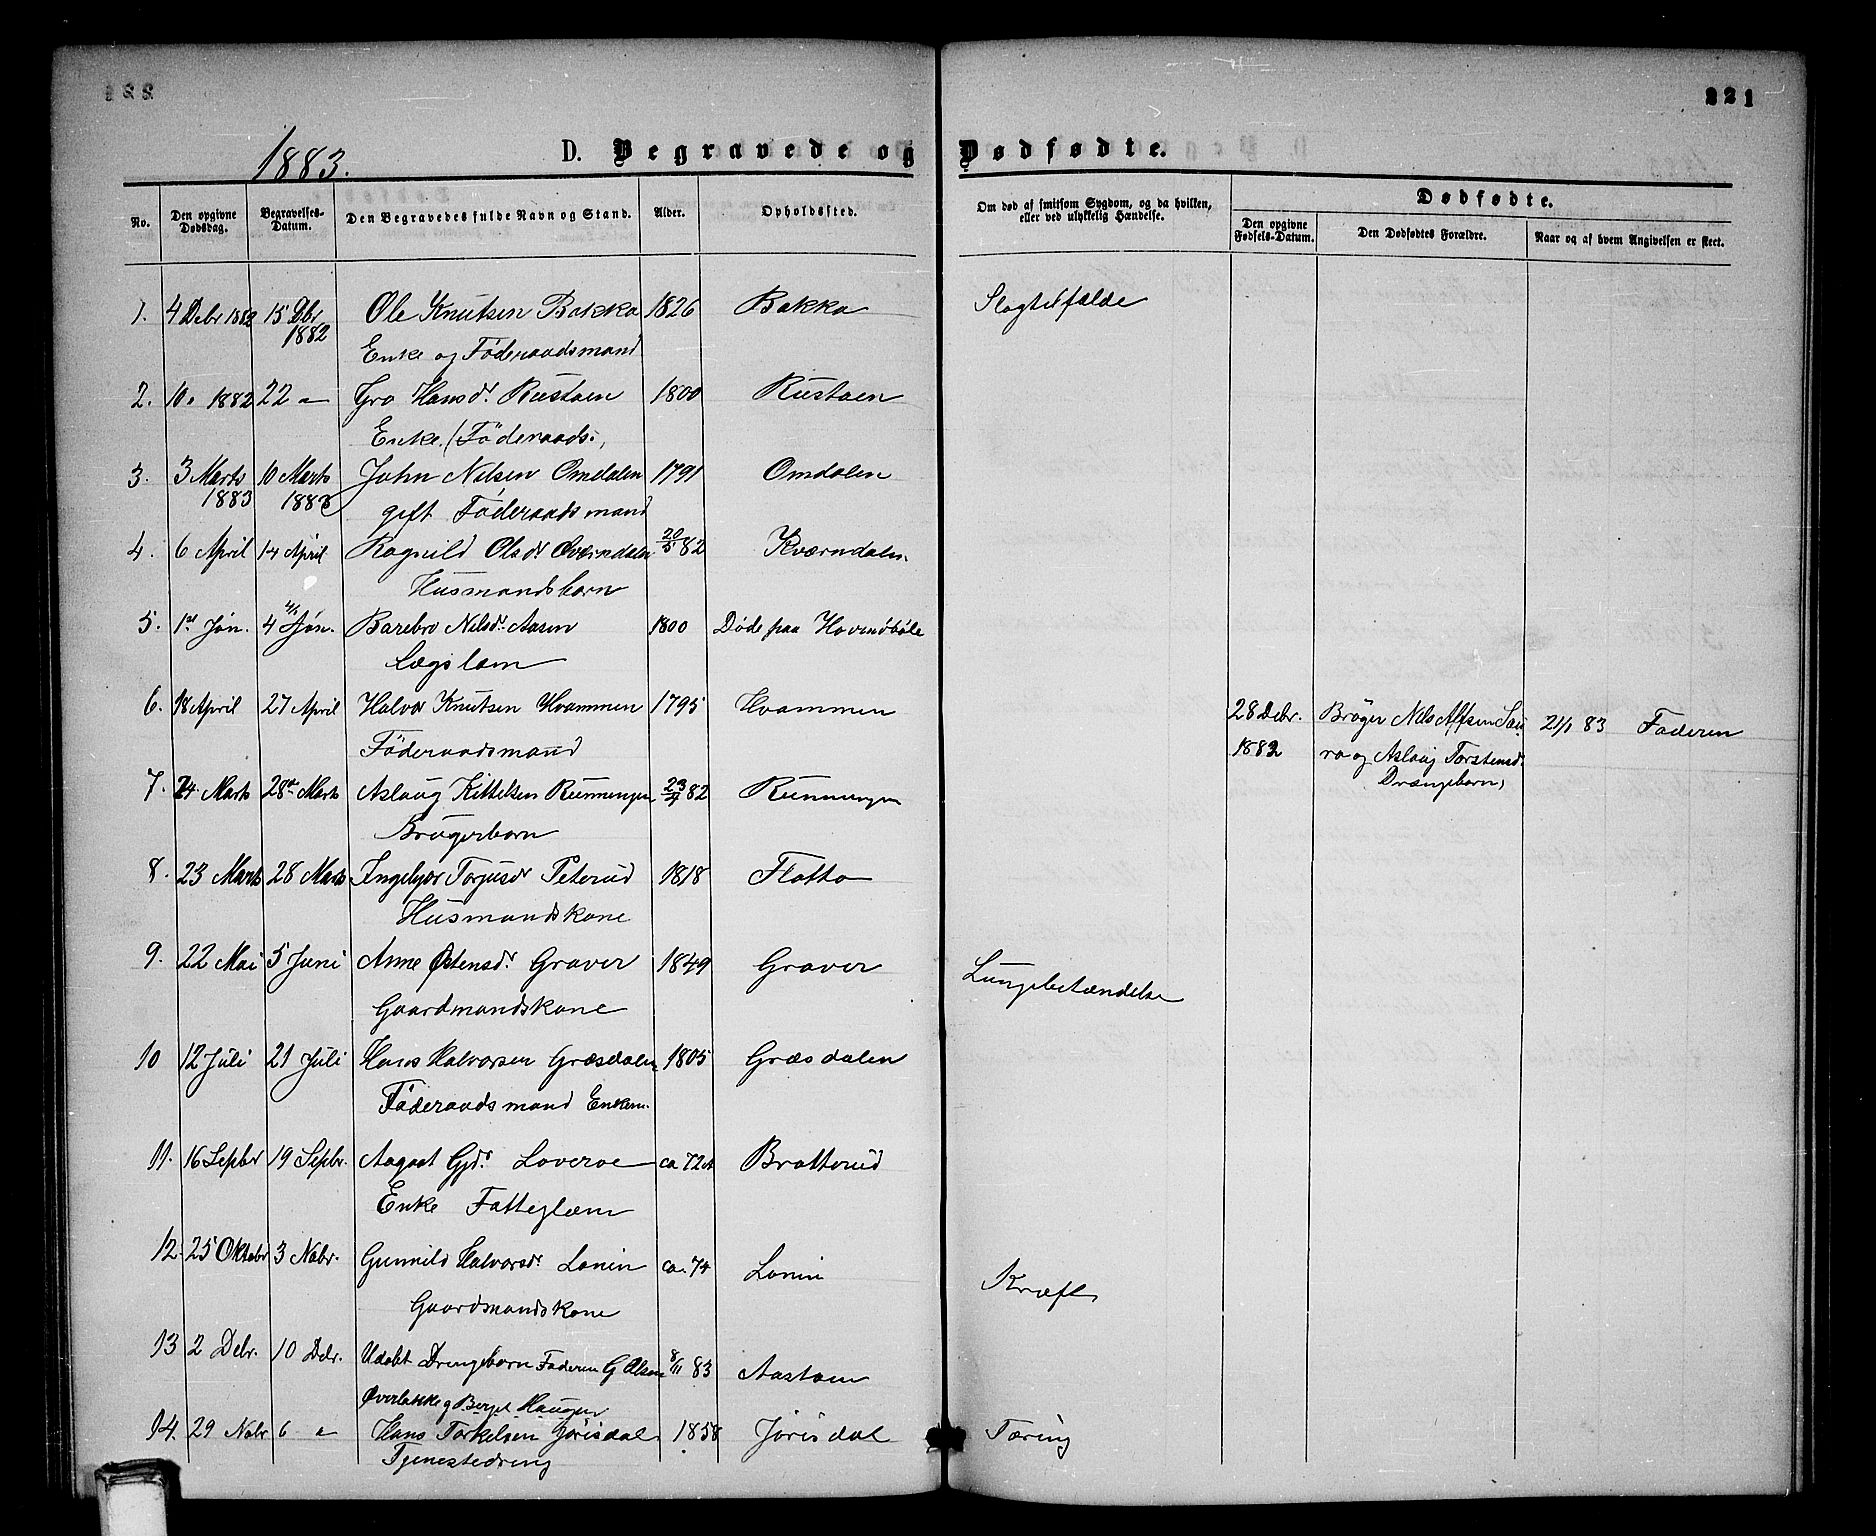 221
1883.
D. Begravede og Dødfødte.
No.
Den opgivne Dødsdag.
Begravelses-Datum.
Den Begravedes fulde Navn og Stand.
Alder.
Opholdssted.
Om død af smitsom Sygdom, og da hvilken, eller ved ulykkelig Hændelse.
Dødfødte.
Den opgivne Fødsels-Datum.
Den Dødfødtes Forældre.
Naar og af hvem Angivelsen er skeet.
1. 4 Debr 1882 15 Dbr 1882 Ole Knutsen Bakka 1826 Bakka Slagtilfælde
Enke og Föderaadsmand
2. 10 1882 22 Gro Hansdr. Rustaen 1800 Rustaen
Enke. (Föderaads.
3. 3 Marts 1883 10 Marts 1883 John Nilsen Omdalen 1791 Omdalen
gift Föderaadsmand
4. 6 April 14 April Ragnild Olsdr 20/5 82 Kværndalen
Husmandsbarn
5. 1st Jan. 4 Jan. Barebro Nilsdr. Aasen 1800 Døde paa Hovindbøle
Lægslem
6. 18 April 27 April Halvor Knutsen Hvammen 1795 Hvammen
Föderaadsmand
28 Debr. 1882 Brøger Nils Alfsen
og Aslaug Torstensd. Drengebarn,
21/1 83 Faderen
7. 24. Marts 28de Marts Aslaug Kittelsen Runningen 82 Runningen
Brügerbarn
8. 23 Marts 28 Marts Ingebjør Torjusdr Peterud 1818 Flatta
Husmandskone
9. 22 Mai 5 Juni Anne Østensdr. Graver 1849 Graver Lungebetændelse
Gaardmandskone
10 12 Juli 21 Juli Hans Halvorsen Græsdalen 1805 Græsdalen
Föderaadsmand Enkem.
11. 16 Sepbr 19 Sepbr. Aagaat Gjdr. Loveroe ca 72 Bratterud
Enke Fatteglæm
12. 25 Oktobr 3 Nobr. Gunnild Halvorsdr. Lonin ca. 74 Lonin Kræft
Gaardmandskone
13 2 Debr. 10 Debr. Udøbt Drengebarn Faderen G Olsen 8/11 83 Aastaen
Øverlakke og Berget Haugen
14. 29 Nobr 6 Hans Torkelsen Jørisdal 1858 Jørisdal Tæring
Tjenestedreng